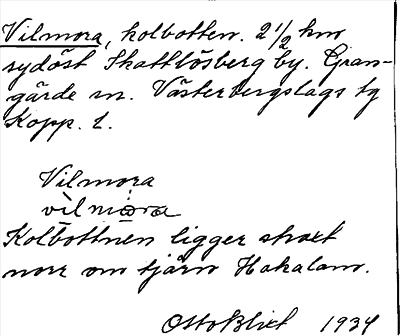 Vilmora, kolbotten. 2 1/2 km
sydöst Skattlösberg by. Gran-
gärde sn. Västerbergslags tg
Kopp. l.
Vilmora
vìlmora
Kolbottnen ligger straxt
norr om tjärn Hakalam.
Otto Blixt 1934